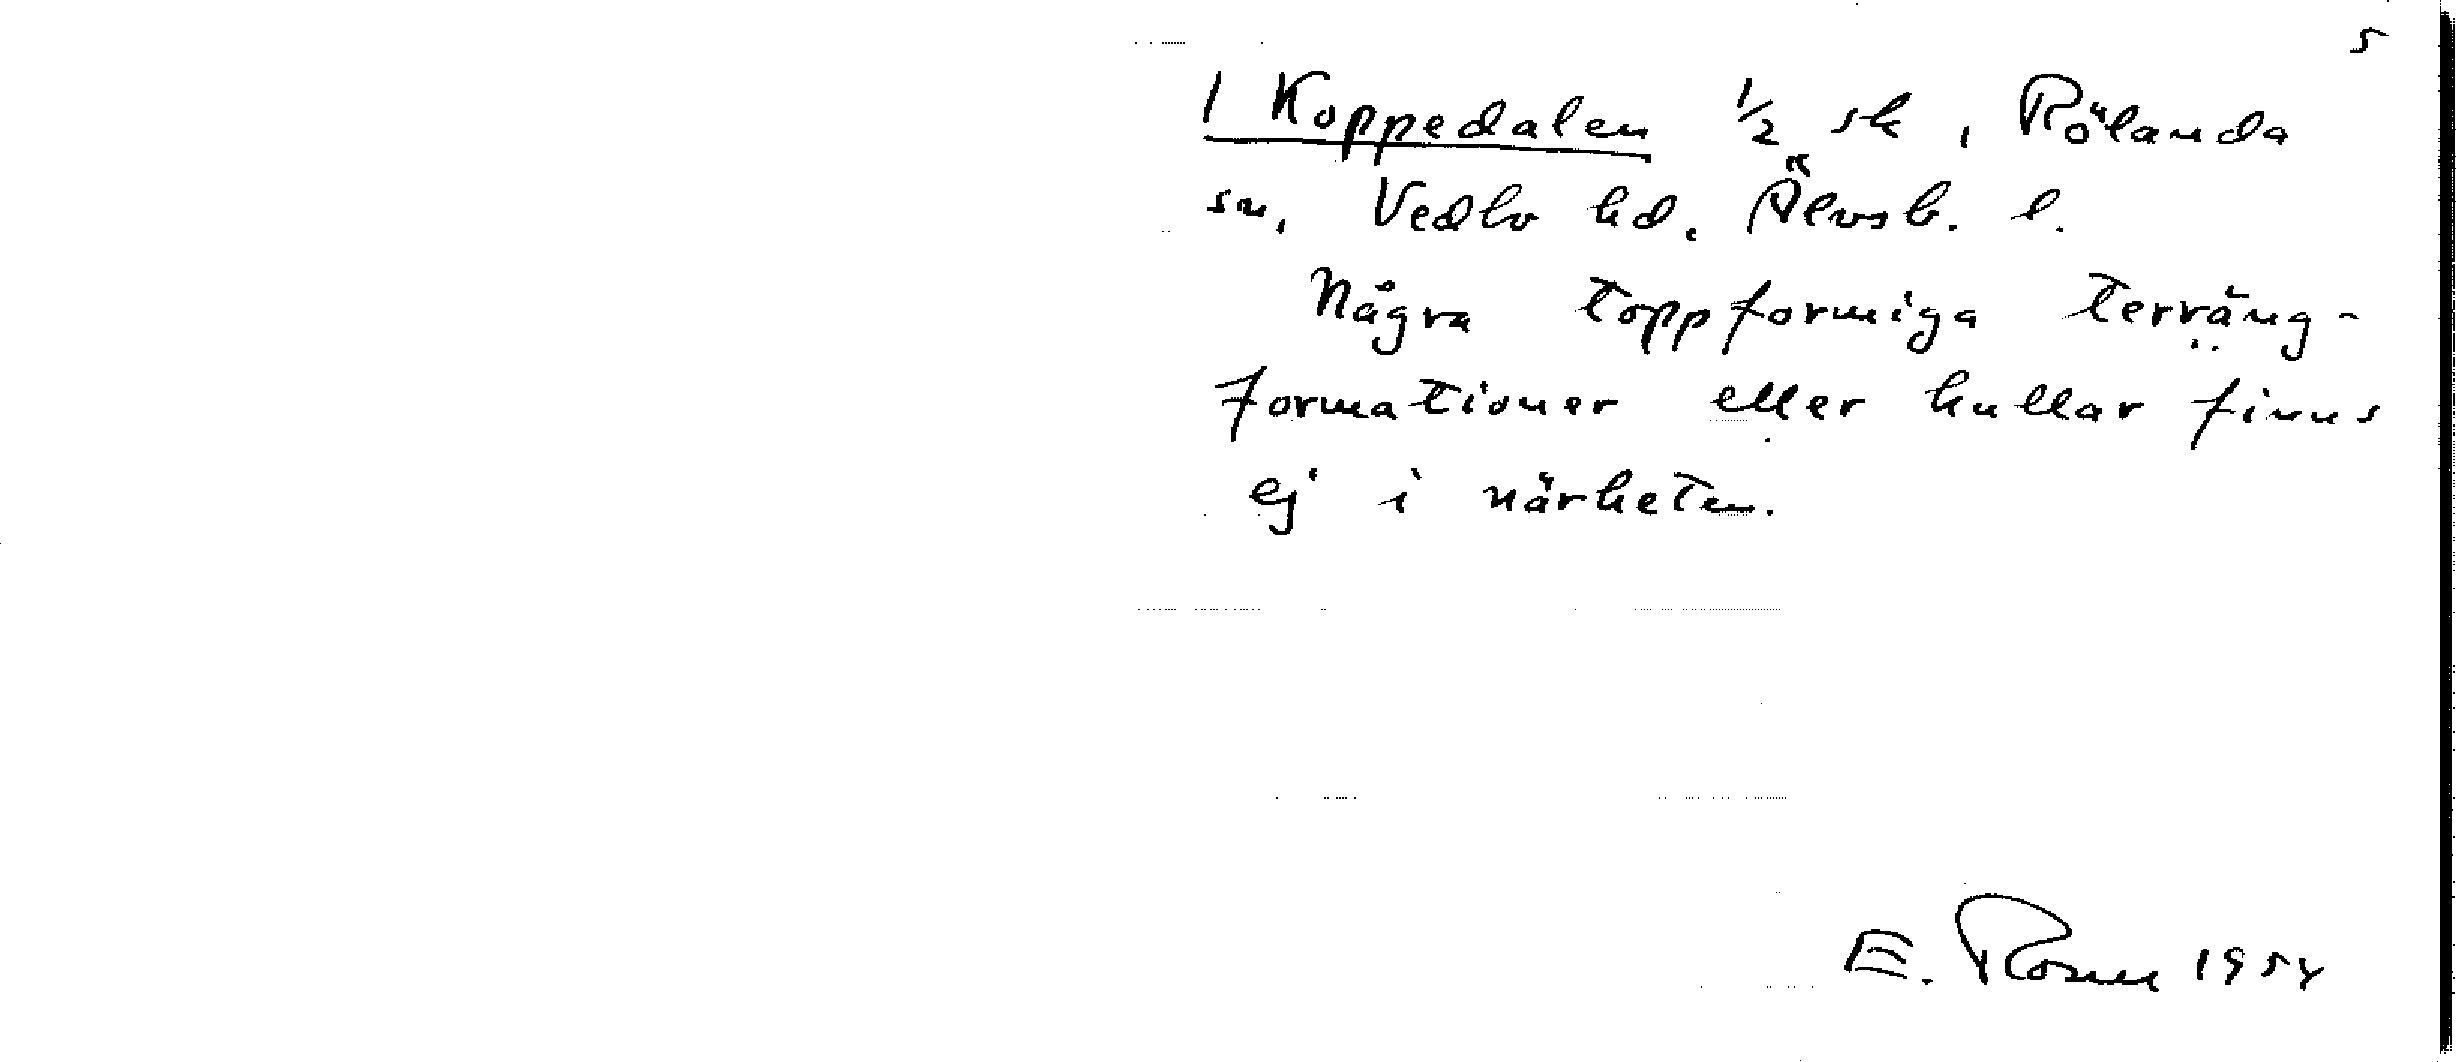 5
1 Koppedalen 1/2 sk, Rölanda
sn, Vedbo hd. Älvsb. l.
Några toppformiga terräng-
formationer eller kullar finns
ej i närheten.
E. 1954